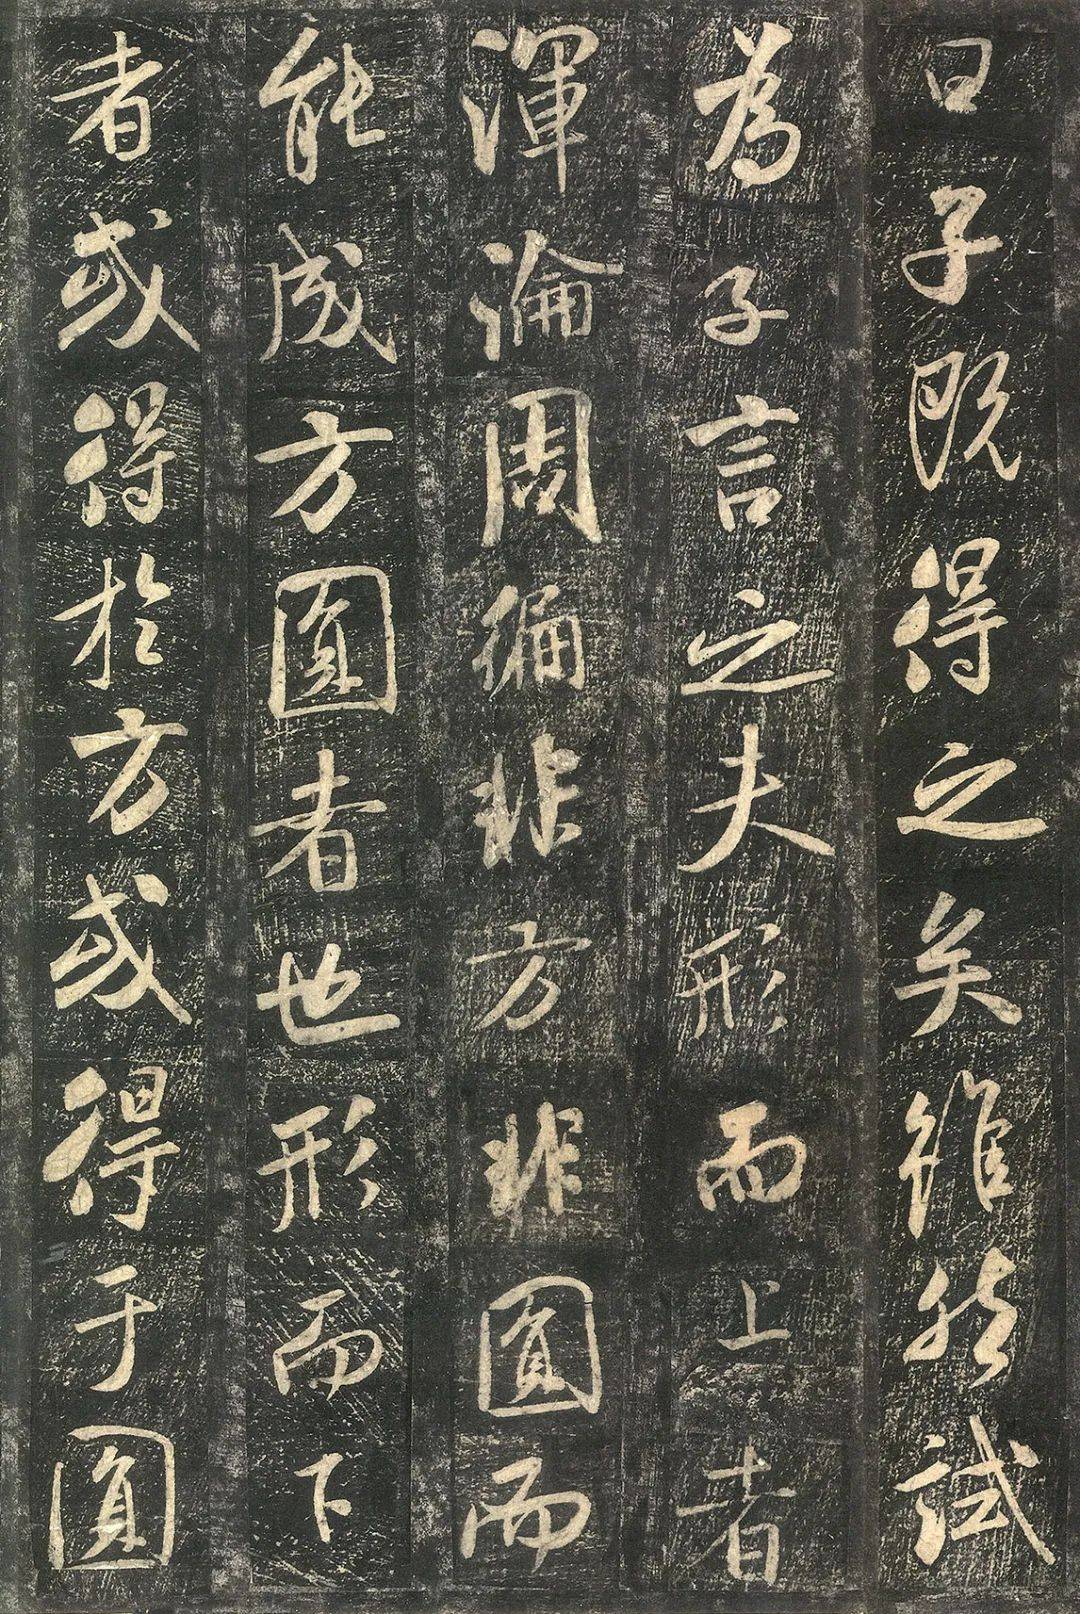 曰子既得之矣雖然試
為子言之夫形而上者
渾淪周徧非方非圓而
能成方圓者也形而下
者或得於方或得于圓